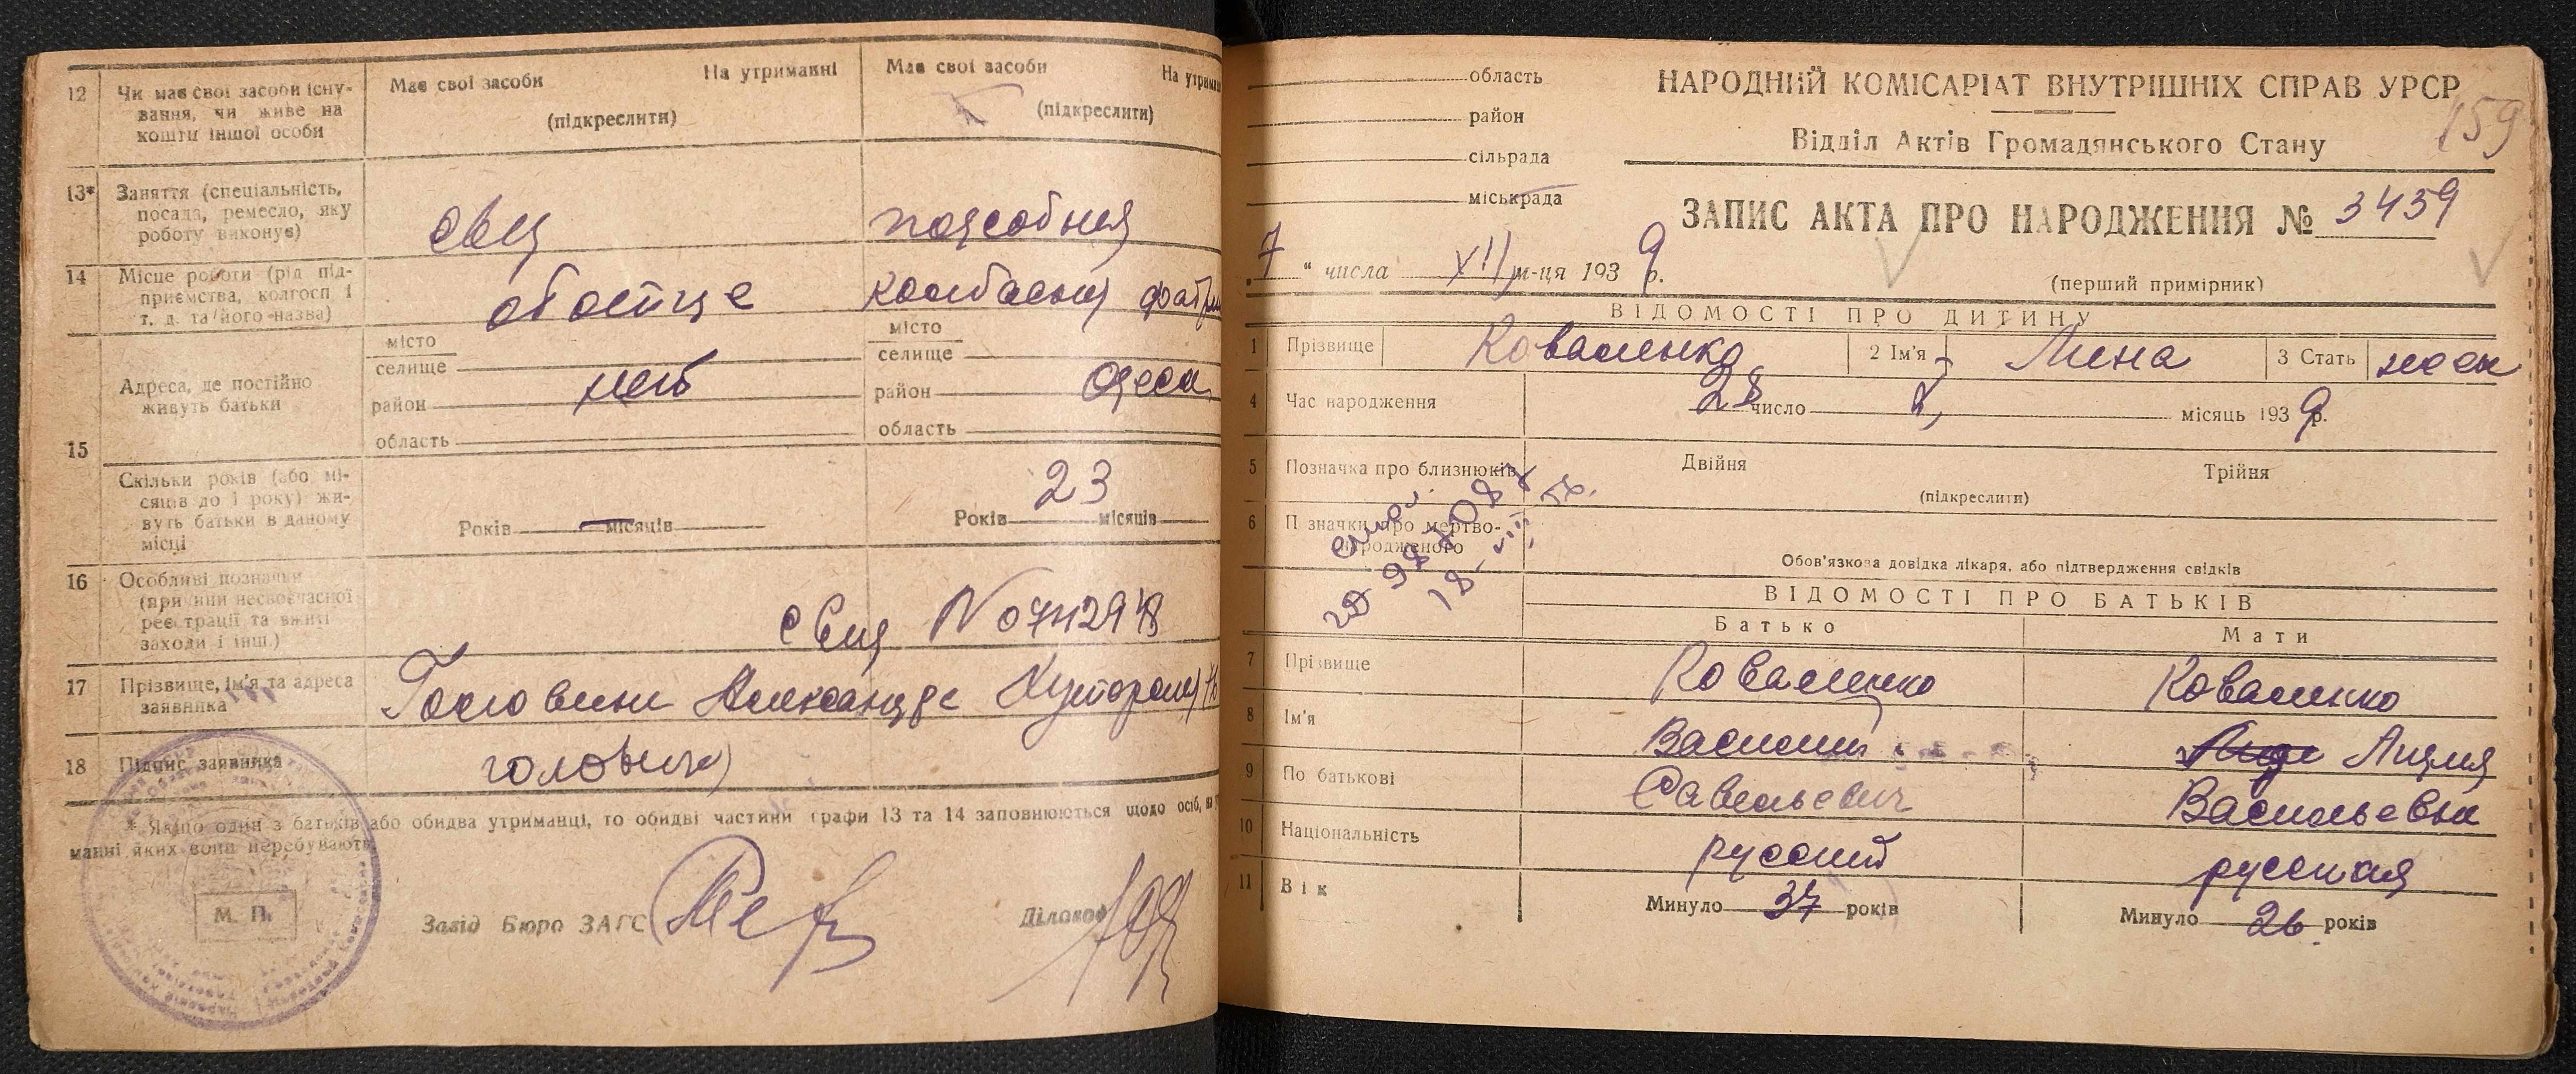 12 Чи має свої засоби існу-
вання, чи живе на
кошти іншої особи
Має свої засоби На утриманні
(підкреслити)
Має свої засоби На утриман
(підкреслити)
13* Заняття (спеціальність,
посада, ремесло, яку
роботу виконує)
подсобная
14 Місце роботи (рід під-
приємства, колгосп і
т. д. та його назва)
колбасная
15 Адреса, де постійно
живуть батьки
місто
селище
район
область
місто
селище
район Одеса
область
Скільки років (або мі-
сяців до 1 року) жи-
вуть батьки в даному
місці
Років — місяців
Років 23 місяців
16 Особливі позначки
(причини несвоєчасної
реєстрації та вжиті
заходи і інш.)
17 Прізвище, ім'я та адреса
заявника
18 Підпис заявника
* Якщо один з батьків або обидва утриманці, то обидві частини графи 13 та 14 заповнюються щодо осіб, на
манні яких вони перебувають
М. П.
Завід Бюро ЗАГС
Діловод
область
район
сільрада
міськрада
НАРОДНИЙ КОМІСАРІАТ ВНУТРІШНІХ СПРАВ УРСР
159
Відділ Актів Громадянського Стану
ЗАПИС АКТА ПРО НАРОДЖЕННЯ № 3459
7 " числа XII м-ця 1939 р.
(перший примірник)
ВІДОМОСТІ ПРО ДИТИНУ
1 Прізвище Коваленко 2 Ім'я Лина 3 Стать жен
4 Час народження 28 число місяць 1939 р.
5 Позначка про близнюків Двійня Трійня
(підкреслити)
6 П значки про мертво-
народженого
Обов'язкова довідка лікаря, або підтвердження свідків
ВІДОМОСТІ ПРО БАТЬКІВ
Батько Мати
7 Прізвище Коваленко Коваленко
8 Ім'я Василий Лидия
9 По батькові Савельевич Васильевна
10 Національність русский русская
11 Вік Минуло 37 років Минуло 26 років